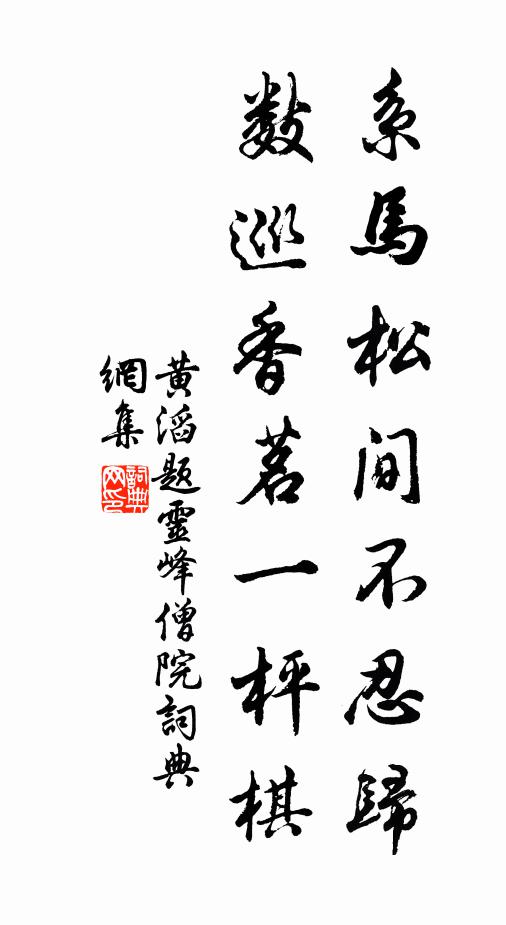 系馬松間不忍歸
數巡香茗一枰棋
黃滔题靈峰僧院詞典
網集
詞典網印